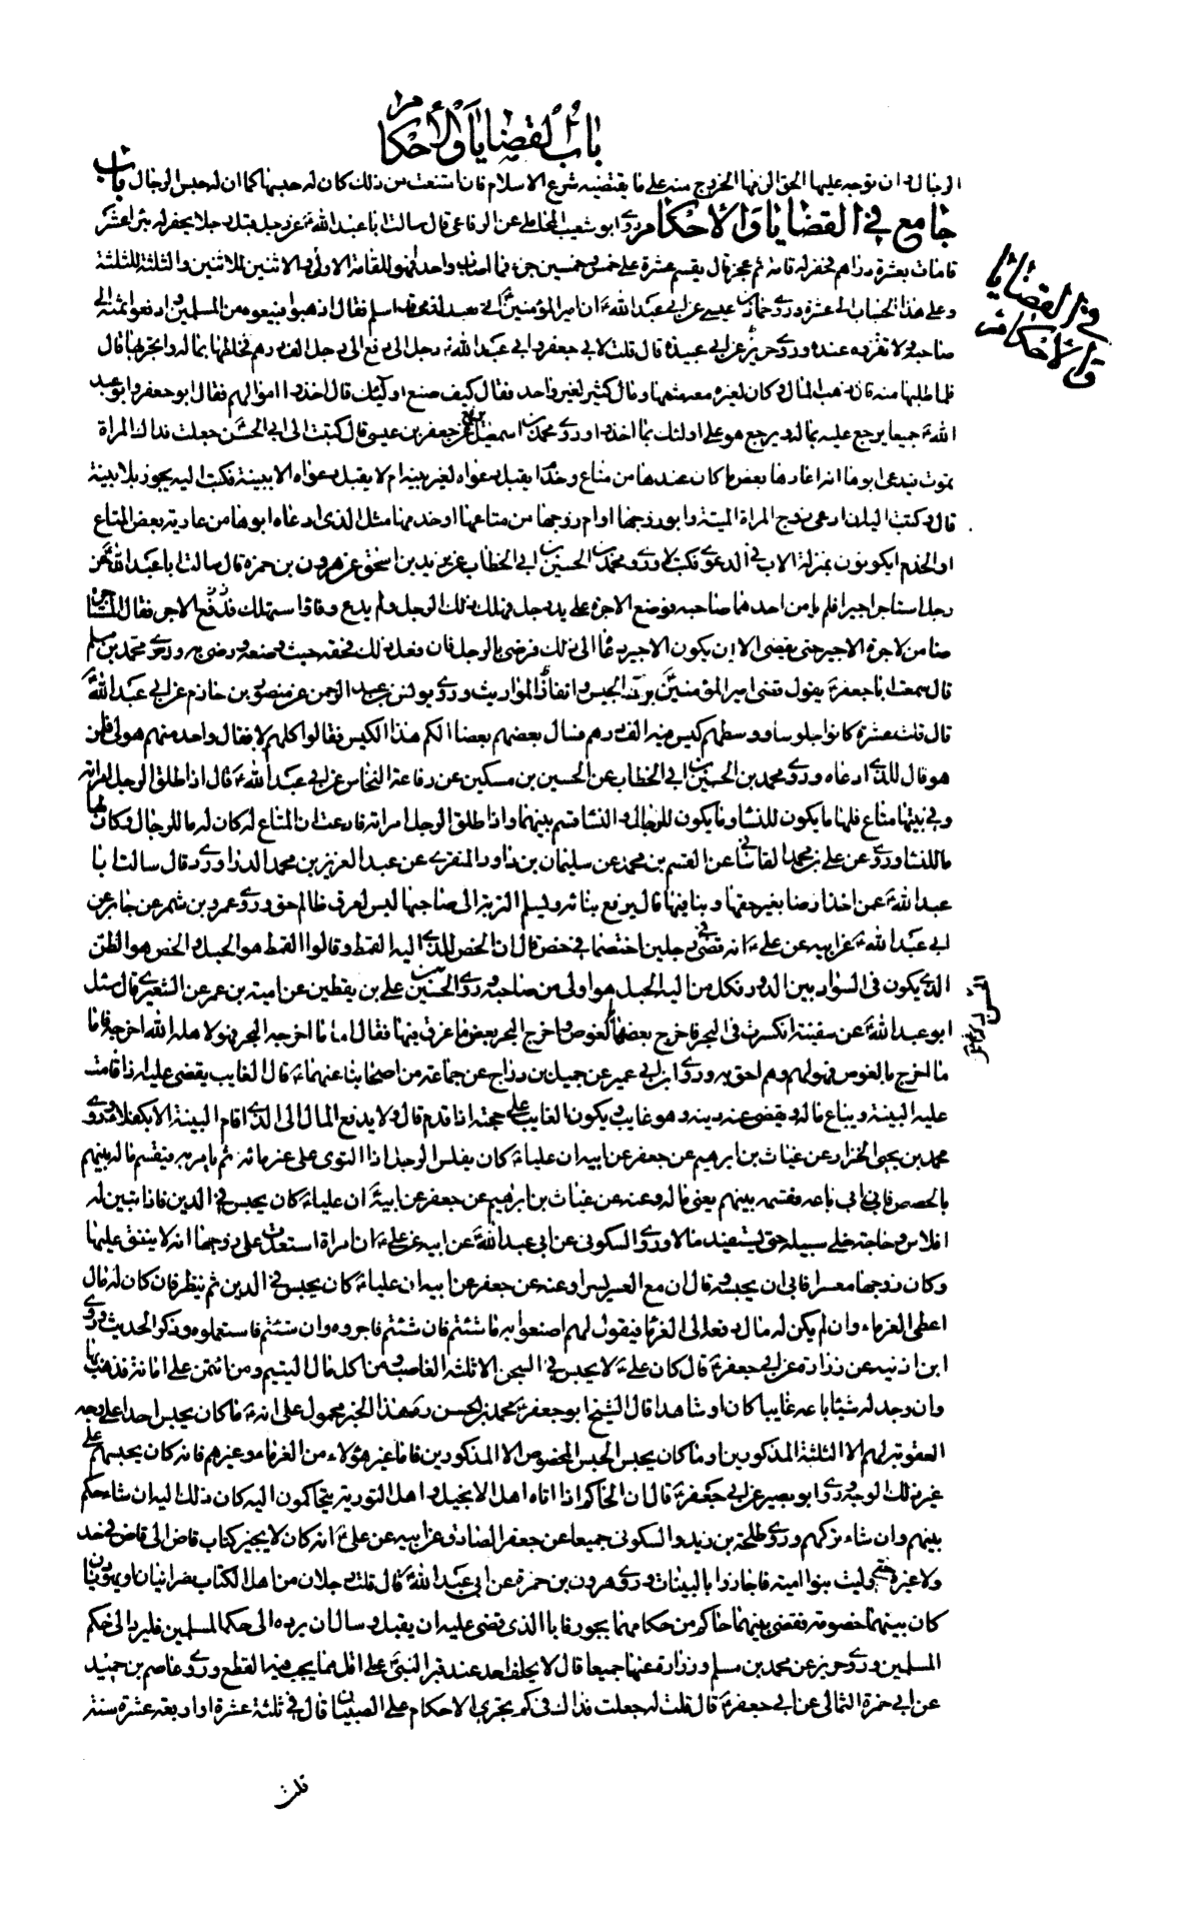 باب القضايا والأحكام
الرجال وان توجه عليها الحق الزمها الخروج منه على ما يقتضيه شرع الاسلام فان امتنعت من ذلك كان له حبسها كما ان له حبس الرجال باب
جامع في القضايا والأحكام روى ابو شعيب المحاملي عن الرفاعي قال سالت ابا عبد الله ع عن رجل قبل رجلا يحفر له بئرا عشر
قامات بعشرة دراهم فحفر له قامة ثم عجز قال يقسم عشرة على خمسة وخمسين جزءا فما اصاب واحد فهو للقامة الاولى والاثنين للاثنين والثلثة للثلثة
وعلى هذا الحساب الى عشرة وروى حماد بن عيسى عن ابي عبد الله ع ان امير المؤمنين ع اتى بعبد لذمي قد اسلم فقال اذهبوا فبيعوه من المسلمين وادفعوا ثمنه الى
صاحبه ولا تقروه عنده وروى حريز عن ابي عبيدة قال قلت لابي جعفر وابي عبد الله ع رجل دفع الى رجل الف درهم فخلطها بماله واتجر بها قال
فلما طلبها منه قال ذهب المال وكان لغيره معه مثلها ومال كثير لغير واحد فقال كيف صنع اولئك قال اخذوا اموالهم فقال ابو جعفر وابو عبد
الله ع جميعا يرجع عليه بماله ويرجع هو على اولئك بما اخذوا وروى محمد بن اسمعيل عن جعفر بن عيسى قال كتبت الى ابي الحسن جعلت فداك المراة
تموت فيدعي ابوها انه اعارها بعض ما كان عندها من متاع وخدم ايقبل دعواه لغير بينة ام لا يقبل دعواه الا ببينة فكتب اليه يجوز بلا بينة
قال وكتبت اليه ان ادعى زوج المراة الميتة وابو زوجها او ام زوجها من متاعها او خدمها مثل الذي ادعاه ابوها من عارية بعض المتاع
او الخدم ايكونون بمنزلة الاب في الدعوى فكتب لا وروى محمد بن الحسين بن ابي الخطاب عن يزيد بن اسحق عن هرون بن حمزة قال سالت ابا عبد الله ع عن
رجل استاجر اجيرا فلم يامن احدهما صاحبه فوضع الاجر على يد رجل فهلك ذلك الرجل ولم يدع وفاء واستهلك الاجر فقال المستاجر
ضامن لاجرة الاجير حتى يقضي الا ان يكون الاجير دعاه الى ذلك فرضى بالرجل فان فعل ذلك فحقه حيث وضعه ورضى به وروى محمد بن مسلم
قال سمعت ابا جعفر ع يقول قضى امير المؤمنين ع برد الحبيس وانفاذ المواريث وروى يونس بن عبد الرحمن عن منصور بن حازم عن ابي عبد الله ع
قال قلت عشرة كانوا جلوسا ووسطهم كيس فيه الف درهم فسال بعضهم بعضا الكم هذا الكيس فقالوا كلهم لا فقال واحد منهم هو لي فلمن
هو قال للذي ادعاه وروى محمد بن الحسين بن ابي الخطاب عن الحسين بن مسكين عن رفاعة النخاس عن ابي عبد الله ع قال اذا طلق الرجل امراته
وفي بيتها متاع فلها ما يكون للنساء وما يكون للرجال والنساء قسم بينهما واذا طلق الرجل امراته فادعت ان المتاع لها كان له ما للرجال وكان لها
ما للنساء وروى عن علي بن محمد القاساني عن القسم بن محمد عن سليمان بن داود المنقري عن عبد العزيز بن محمد الدراوردي قال سالت ابا
عبد الله ع عمن اخذ ارضا بغير حقها وبنا فيها قال يرفع بنائه ويسلم التربة الى صاحبها ليس لعرق ظالم حق وروى عمرو بن شمر عن جابر عن
ابي عبد الله ع عن ابيه عن علي ع انه قضى في رجلين اختصما في خص قال ان الخص للذي اليه القمط وقالوا القمط هو الحبل والخص هو الطن
الذي يكون في السواد بين الدور فكل من اليه الحبل هو اولى من صاحبه وروى الحسين بن علي بن يقطين عن امية بن عمر عن الشعيري قال سئل
ابو عبد الله ع عن سفينة انكسرت في البحر فاخرج بعضها بالغوص واخرج البحر بعض ما غرق فيها فقال اما ما اخرجه البحر فهو لاهله الله اخرجه واما
ما اخرج بالغوص فهو لهم وهم احق به وروى ابن ابي عمير عن جميل بن دراج عن جماعة من اصحابنا عنهما ع قال الغايب يقضى عليه اذا قامت
عليه البينة ويباع ماله ويقضى عنه دينه وهو غايب ويكون الغايب على حجته اذا قدم قال ولا يدفع المال الى الذي اقام البينة الا بكفلاء وروى
محمد بن يحيى الخزاز عن غياث بن ابرهيم عن جعفر عن ابيه ان عليا ع كان يفلس الرجل اذا التوى على غرمائه ثم يامر به فيقسم ماله بينهم
بالحصص فان ابى باعه فقسمه بينهم يعني ماله وعنه عن غياث بن ابراهيم عن جعفر عن ابيه ع ان عليا ع كان يحبس في الدين فاذا تبين له
افلاس وحاجة خلى سبيله حتى يستفيد مالا وروى السكوني عن ابي عبد الله ع عن ابيه عن علي ع ان امراة استعدت على زوجها انه لا ينفق عليها
وكان زوجها معسرا فابى ان يحبسه وقال ان مع العسر يسرا وعنه عن جعفر عن ابيه ان عليا ع كان يحبس في الدين ثم ينظر فان كان له مال
اعطى الغرماء وان لم يكن له مال دفعه الى الغرماء فيقول لهم اصنعوا به ما شئتم فان شئتم فاجروه وان شئتم فاستعملوه وذكر الحديث وروى
ابن اذينه عن زرارة عن ابي جعفر ع قال كان علي ع لا يحبس في السجن الا ثلثه الغاصب ومن اكل مال اليتيم ومن اؤتمن على امانة فذهب بها
وان وجد له شيئا باعه غايبا كان او شاهدا قال الشيخ ابو جعفر ع محمد بن الحسن ره هذا الخبر محمول على انه ع ما كان يحبس احدا على وجه
العقوبة لهم الا الثلثة المذكورين او ما كان يحبس الحبس المخصوص الا المذكورين فاما غير هؤلاء من الغرماء وغيرهم فانه كان يحبسهم على
غير ذلك الوجه وروى ابو بصير عن ابي جعفر ع قال ان الحاكم اذا اتاه اهل الانجيل واهل التورية يتحاكمون اليه كان ذلك اليه ان شاء حكم
بينهم وان شاء تركهم وروى طلحة بن زيد والسكوني جميعا عن جعفر الصادق عن ابيه عن علي ع انه كان لا يجيز كتاب قاض الى قاض في حد
ولا غيره حتى وليت بنوا امية فاجازوا بالبينات وروى هرون بن حمزة عن ابي عبد الله ع قال قلت رجلان من اهل الكتاب نصرانيان او يهوديان
كان بينهما خصومة فقضى بينهما حاكم من حكامهما بجور فابا الذي قضى عليه ان يقبل وسال ان يرده الى حكم المسلمين قال يرد الى حكم
المسلمين وروى حريز عن محمد بن مسلم وزرارة عنهما جميعا قال لا يحلف احد عند قبر النبي ص على اقل مما يجب فيه القطع وروى عاصم بن حميد
عن ابي حمزة الثمالي عن ابي جعفر ع قال قلت له جعلت فداك في كم تجري الاحكام على الصبيان قال في ثلثة عشرة او اربعة عشرة سنة
قلت
في القضايا
والأحكام